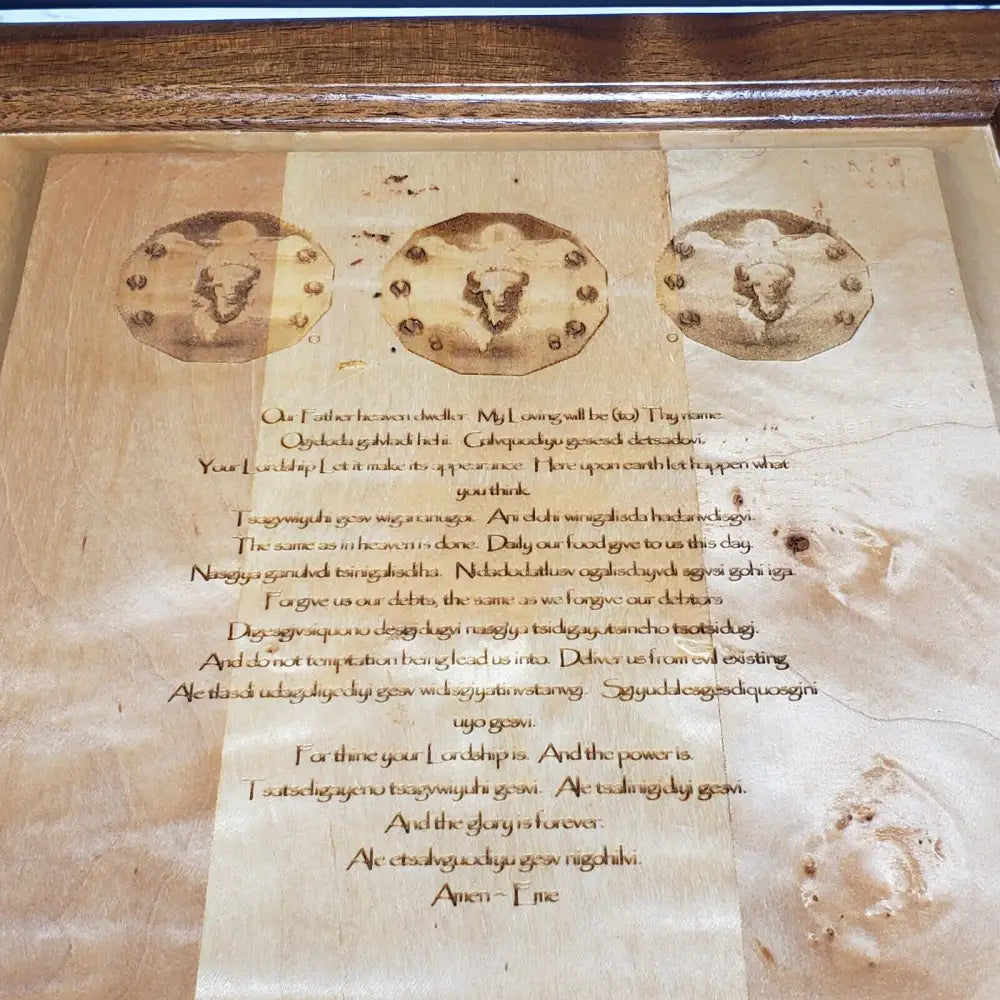 Our Father heaven dweller. My Loving will be (to) Thy name.
Ogidoda galvladi hehi. Galvquodiyu gesesdi detsadovi.
Your Lordship Let it make its appearance. Here upon earth let happen what
you think.
Tsagvwiyuhi gesv wigananugoi. Ani elohi winigalisda hadanvdisgvi.
The same as in heaven is done. Daily our food give to us this day.
Nasgiya galvladi tsinigalisdiha. Nidadodatlusv ogalisdayvdi sgivsi gohi iga.
Forgive us our debts, the same as we forgive our debtors
Digesgivsiquono desgidugvi nasgiya tsidigayotsineho tsotsidugi.
And do not temptation being lead us into. Deliver us from evil existing
Ale tlasdi udagoliyediyi gesv widisgiyatinvstanvgi. Sgiyudalesgesdiquosgini
uyo gesvi.
For thine your Lordship is. And the power is.
Tsatseligayeno tsagvwiyuhi gesvi. Ale tsalinigidiyi gesvi.
And the glory is forever.
Ale etsalvguodiyu gesv nigohilvi.
Amen ~ Eme